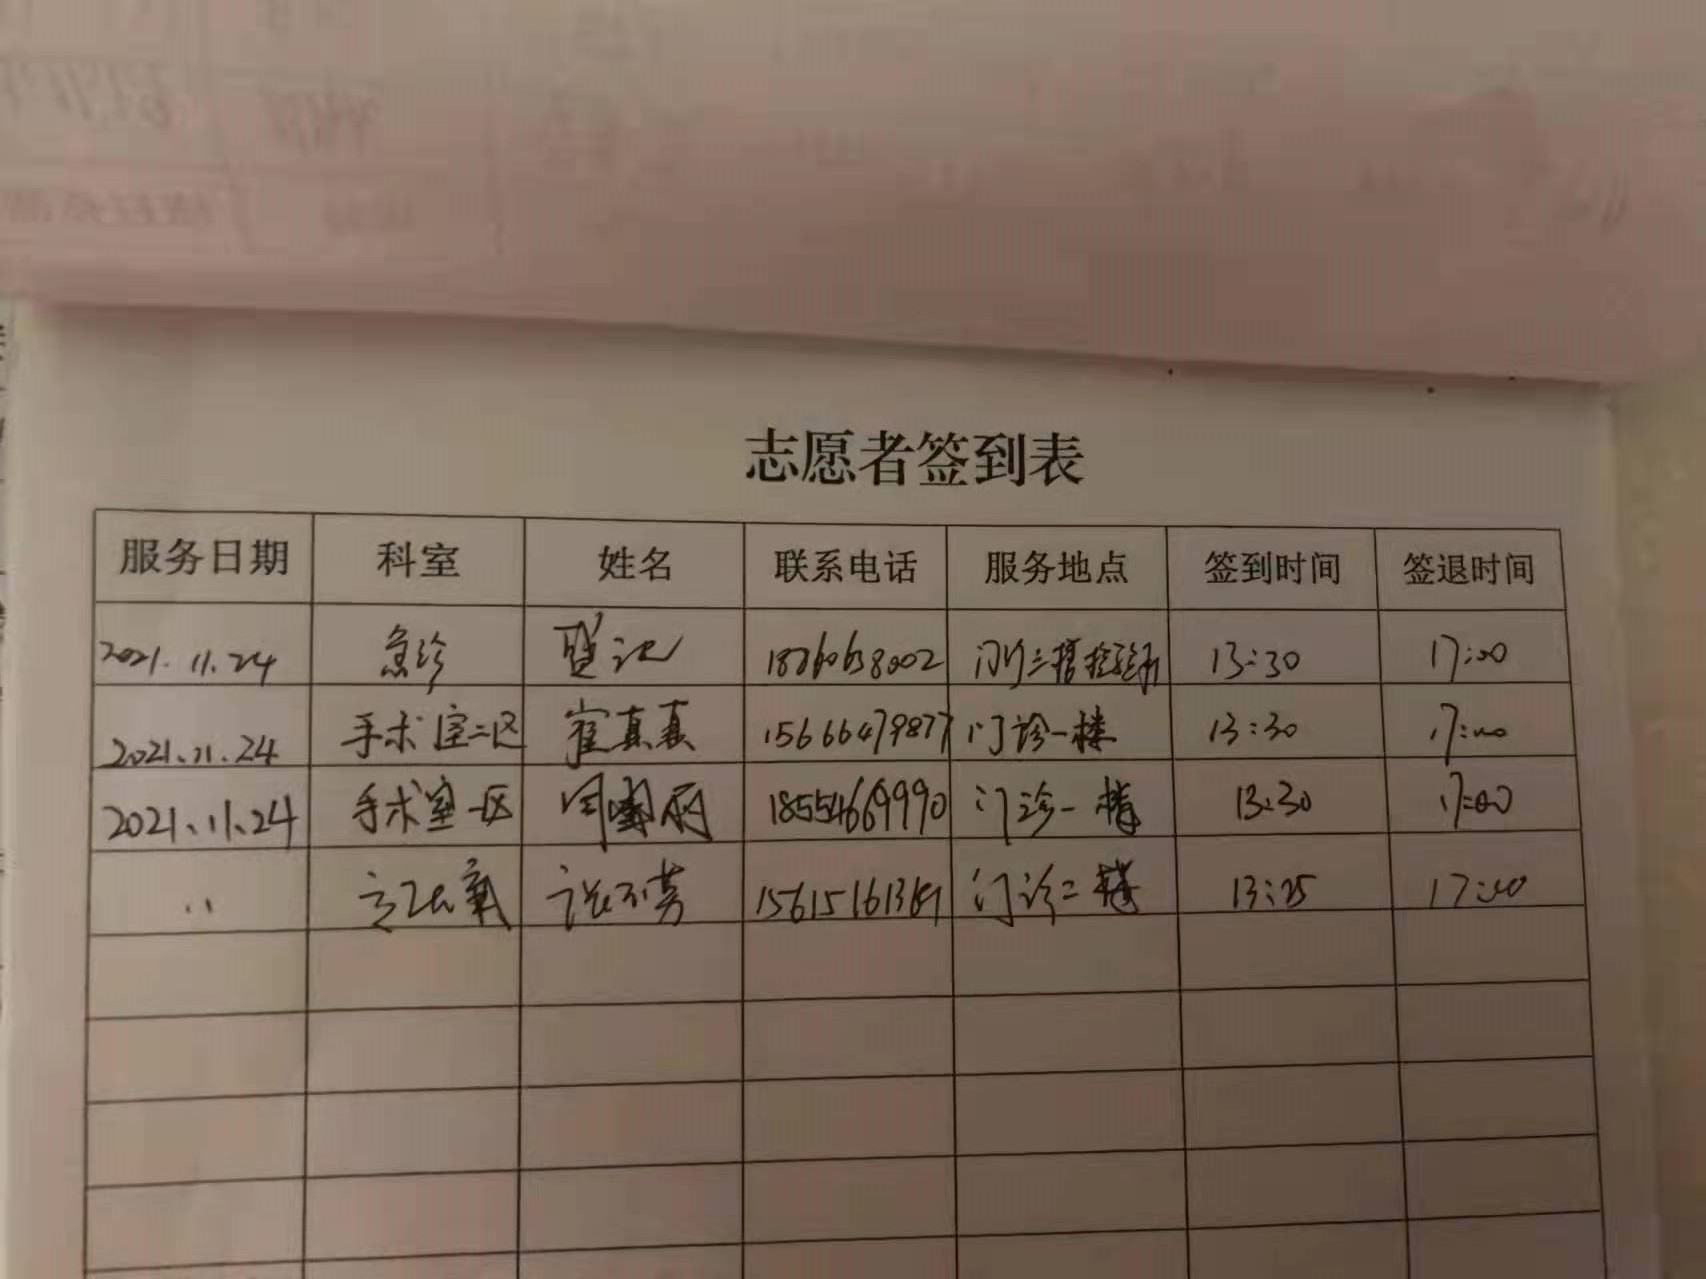 志愿者签到表
服务日期 科室 姓名 联系电话 服务地点 签到时间 签退时间
2021.11.24 急诊 18260638002 门诊三楼 13:30 17:00
2021.11.24 手术室二区 崔真真 15666479877 门诊一楼 13:30 17:00
2021.11.24 手术室一区 18554669990 门诊一楼 13:30 17:00
〃 门诊二楼 13:25 17:00